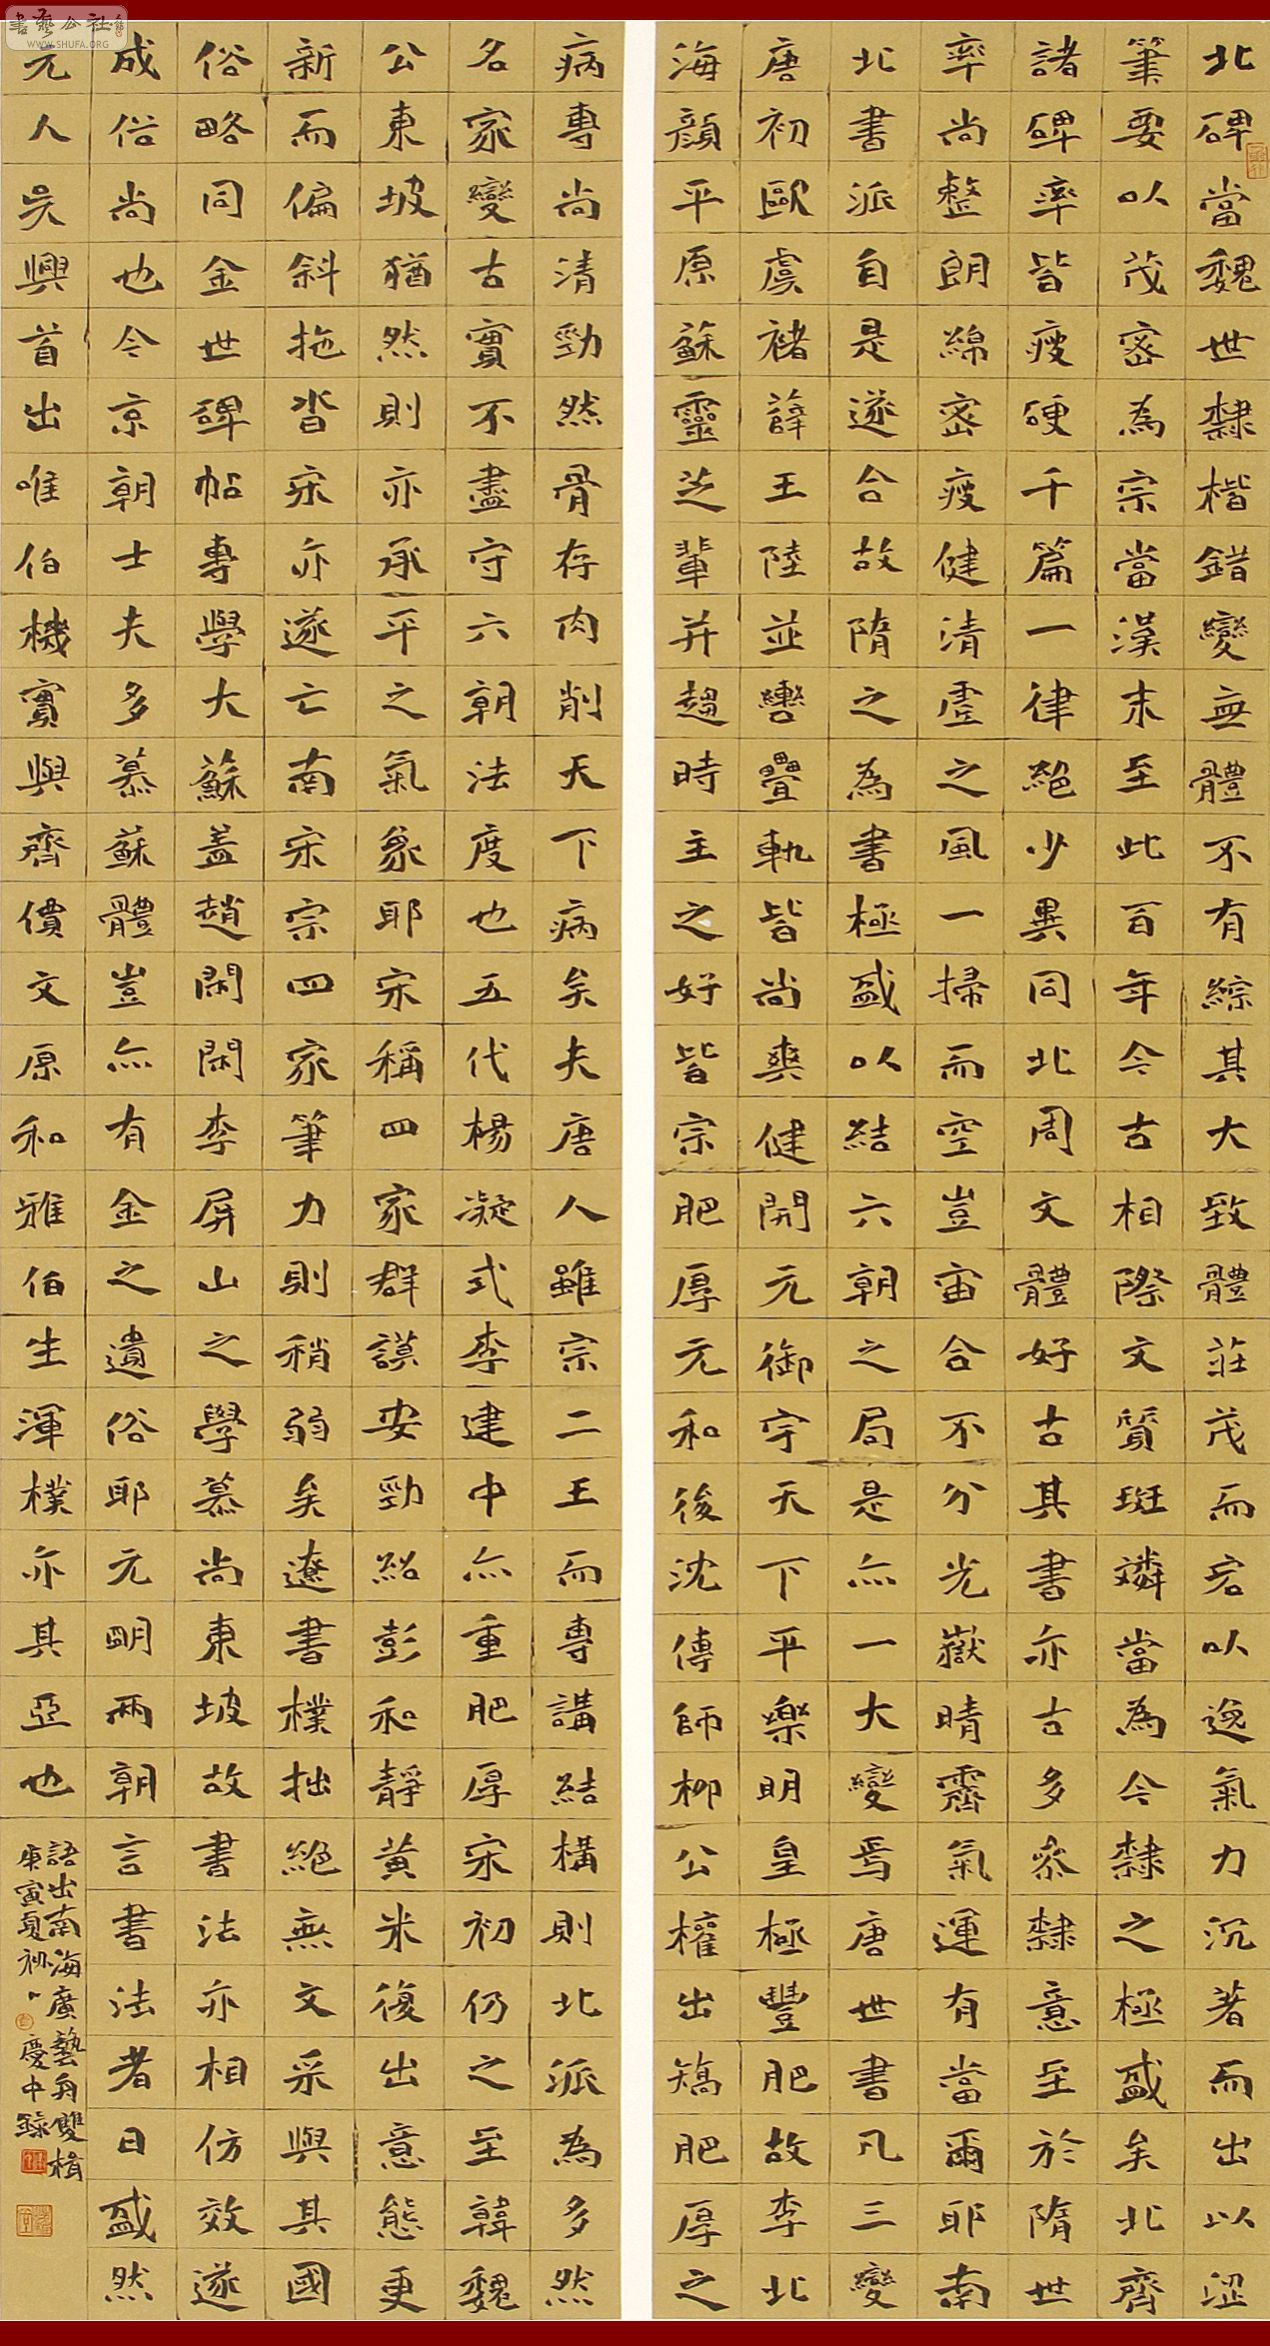 北碑當魏世隸楷錯變無體不有綜其大致體莊茂而宕以逸氣力沉著而出以澀
筆要以茂密為宗當漢末至此百年今古相際文質斑斕當為今隸之極盛矣北齊
諸碑率皆瘦硬千篇一律絕少異同北周文體好古其書亦古多參隸意至於隋世
率尚整朗綿密瘦健清虛之風一掃而空豈宙合不分光嶽晴霽氣運有當爾耶南
北書派自是遂合故隋之為書極盛以結六朝之局是亦一大變焉唐世書凡三變
唐初歐虞褚薛王陸並轡疊軌皆尚爽健開元御宇天下平樂明皇極豐肥故李北
海顏平原蘇靈芝輩并趨時主之好皆宗肥厚元和後沈傳師柳公權出矯肥厚之
病專尚清勁然骨存肉削天下病矣夫唐人雖宗二王而專講結構則北派為多然
名家變古實不盡守六朝法度也五代楊凝式李建中亦重肥厚宋初仍之至韓魏
公東坡猶然則亦承平之氣象耶宋稱四家群謨安勁紹彭和靜黃米復出意態更
新而偏斜拖沓宋亦遂亡南宋宗四家筆力則稍弱矣遼書樸拙絕無文采與其國
俗略同金世碑帖專學大蘇蓋趙閑閑李屏山之學慕尚東坡故書法亦相仿效遂
成俗尚也今京朝士夫多慕蘇體豈亦有金之遺俗耶元明兩朝言書法者日盛然
元人吳興首出唯伯機實與齊價文原和雅伯生渾樸亦其亞也
語出南海廣藝舟雙楫
庚寅夏初 慶中錄
書藝公社
WWW.SHUFA.ORG